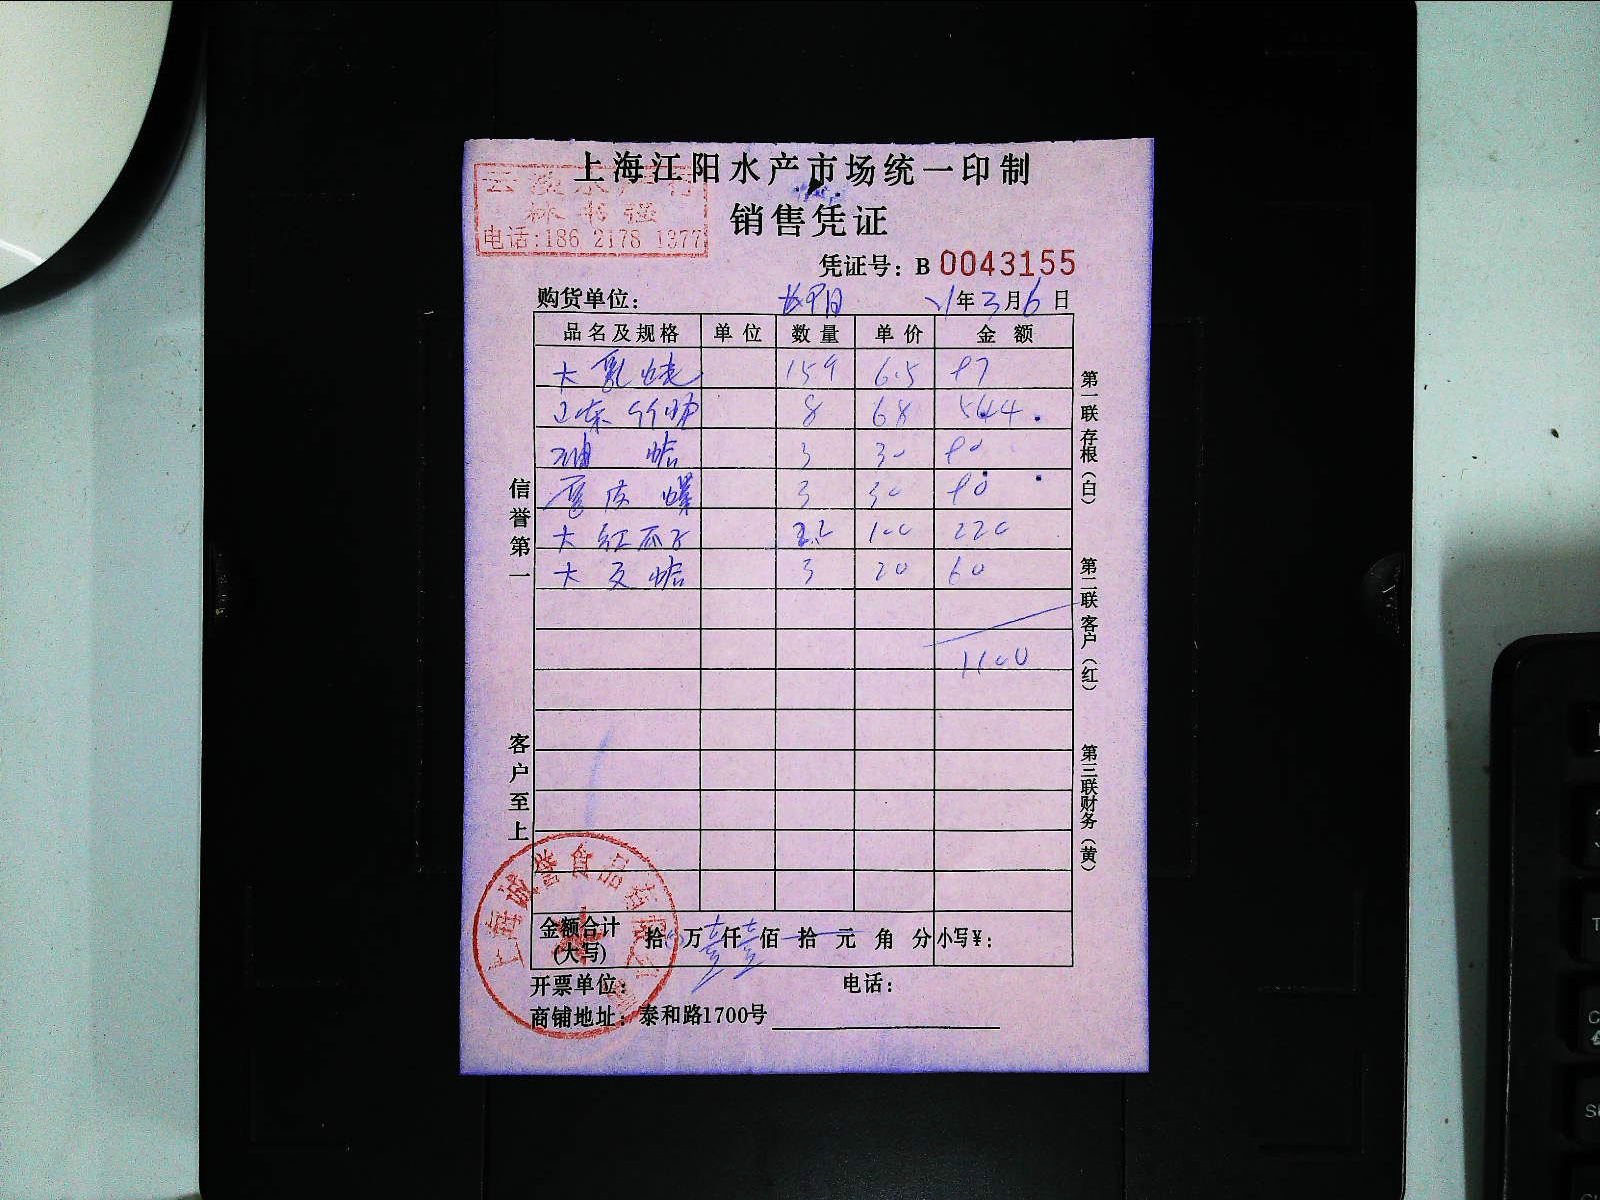 上海江阳水产市场统一印制
林书强
电话:186 2178 1377
销售凭证
凭证号：B 0043155
购货单位： 21年3月6日
品名及规格 单位 数量 单价 金额
大 6.5 97
8 68 544
油蛤 3 30 90
3 30 90
大红瓜子 2.2 100 220
大 蛤 3 20 60
1100
信誉第一
客户至上
第一联存根（白）
第二联客户（红）
第三联财务（黄）
上海诚誉食品有限公司
金额合计（大写） 拾 万壹仟壹佰拾元角分 小写¥：
开票单位： 电话：
商铺地址：泰和路1700号